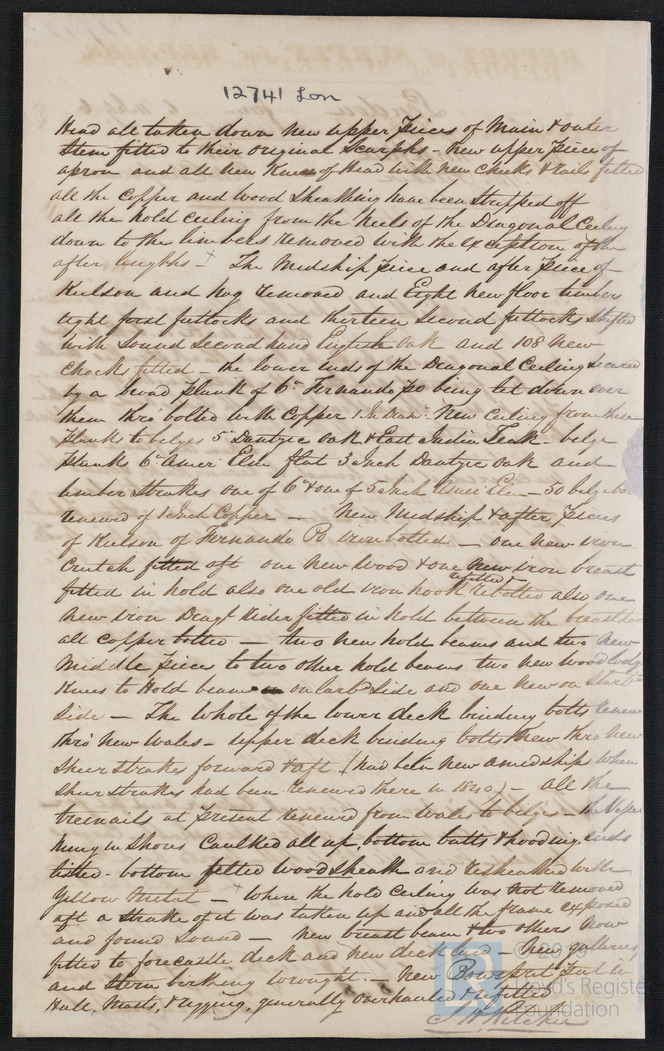 12741 Lon
Head all taken down New upper pieces of Main & outer
Stem fitted to their original Scarphs - New upper piece of
apron and all new Knees of Head with new cheeks & rails fitted
all the Copper and wood Sheathing have been stripped off
all the hold Ceiling from the Heels of the Diagonal Ceiling
down to the timbers removed with the exception of the
after lengths - The Midship piece and after piece of
Keelson and Hog removed and Eight new floor timbers
eight first futtocks and thirteen Second futtocks Shifted
with Sound Second hand English oak and 108 new
Chocks fitted - the lower ends of the Diagonal Ceiling Secured
by a broad plank of 6in Fernando Po being let down over
them thro' bolted with Copper 1 In Diamr New Ceiling from these
planks to bilges 5in Dantzic oak & East Indian Teak - bilge
planks 6in Amer Elm flat 3 Inch Dantzic oak and
limber Strakes one of 6 & one of 5 Inch Amer Elm - 50 bilge bo
renewed of 1 Inch Copper - New Midship & after pieces
of Keelson of Fernando Po iron bolted - one new iron
Crutch fitted aft one new wood & one new iron breast
fitted in hold also one old iron hook refitted & rebolted also one
new iron Diagl rider fitted in hold between the breasthoo
all Copper bolted - two new hold beams and two new
Middle pieces to two other hold beams two new wood lodg
Knees to Hold beam on larbd Side and one new on Starb
Side - The whole of the lower deck binding bolts renew
thro' new Wales - upper deck binding bolts new thro new
Sheer Strakes forward & aft (had been new amidships when
Sheer Strakes had been renewed there in 1840) - all the
treenails at present renewed from Wales to bilges - the Vessel
hung in Shores Caulked all up, bottom butts & hooding ends
listed - bottom felted wood Sheath and resheathed with
Yellow Metal - Where the hold Ceiling was not removed
aft a Strake of it was taken up and all the frame exposed
and found Sound - new breast beam & two others now
fitted to forecastle deck and new deck laid - new galleries
and Stern birthing wrought. - New Bowsprit Put in
Hull, Masts, & rigging, generally overhauled & refitted
J H Ritchie
© 2019
Lloyd's Register
Foundation